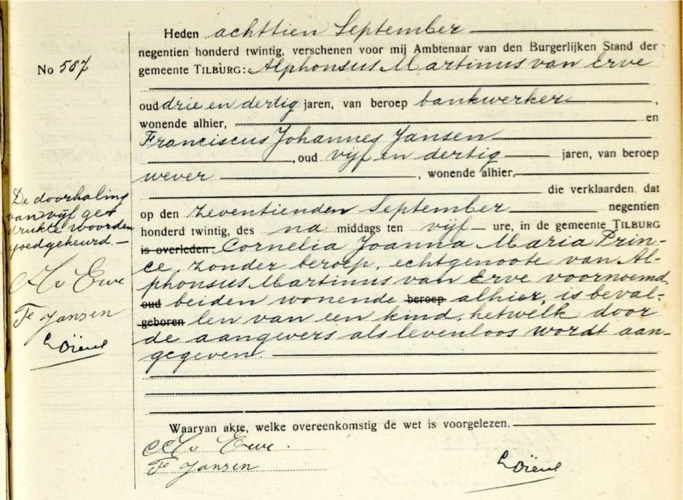 Heden achttien September
negentien honderd twintig, verschenen voor mij Ambtenaar van den Burgerlijken Stand der
No 587
gemeente TILBURG: Alphonsus Martinus van Erve
oud drie en dertig jaren, van beroep bankwerker,
wonende alhier, en
Franciscus Johannes Jansen
, oud vijf en dertig jaren, van beroep
wever, wonende alhier,
die verklaarden, dat
op den zeventienden September negentien
honderd twintig, des na middags ten vijf ure, in de gemeente TILBURG
is overleden: Cornelia Joanna Maria Prin-
ce, zonder beroep, echtgenoote van Al-
phonsus Martinus van Erve voornoemd,
oud beiden wonende beroep alhier, is beval-
geboren len van een kind, hetwelk door
de aangevers als levenloos wordt aan-
gegeven.
De doorhaling
van vijf ged
drukte woorden
goedgekeurd.—
v Erve
Fr Jansen
Waarvan akte, welke overeenkomstig de wet is voorgelezen.
v Erve.
Fr Jansen